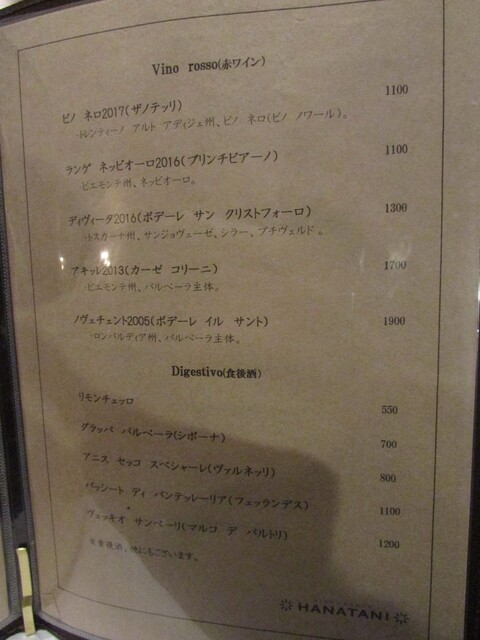 Vino rosso(赤ワイン)
ピノ ネロ2017(ザノテッリ) 1100
・トレンティーノ アルト アディジェ州、ピノ ネロ(ピノ ノワール)。
ランゲ ネッビオーロ2016(プリンチピアーノ) 1100
・ピエモンテ州、ネッビオーロ。
ディヴィータ2016(ポデーレ サン クリストフォーロ) 1300
・トスカーナ州、サンジョヴェーゼ、シラー、プチヴェルド。
アキッレ2013(カーゼ コリーニ) 1700
・ピエモンテ州、バルベーラ主体。
ノヴェチェント2005(ポデーレ イル サント) 1900
・ロンバルディア州、バルベーラ主体。
Digestivo(食後酒)
リモンチェッロ 550
グラッパ バルベーラ(シボーナ) 700
アニス セッコ スペシャーレ(ヴァルネッリ) 800
パッシート ディ パンテッレーリア(フェッランデス) 1100
ヴェッキオ サンペーリ(マルコ デ バルトリ) 1200
※食後酒、他にもございます。
HANATANI